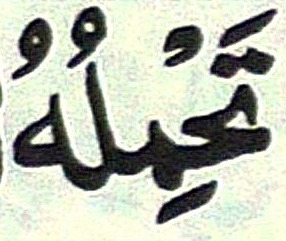 تَحْمِلُهُ